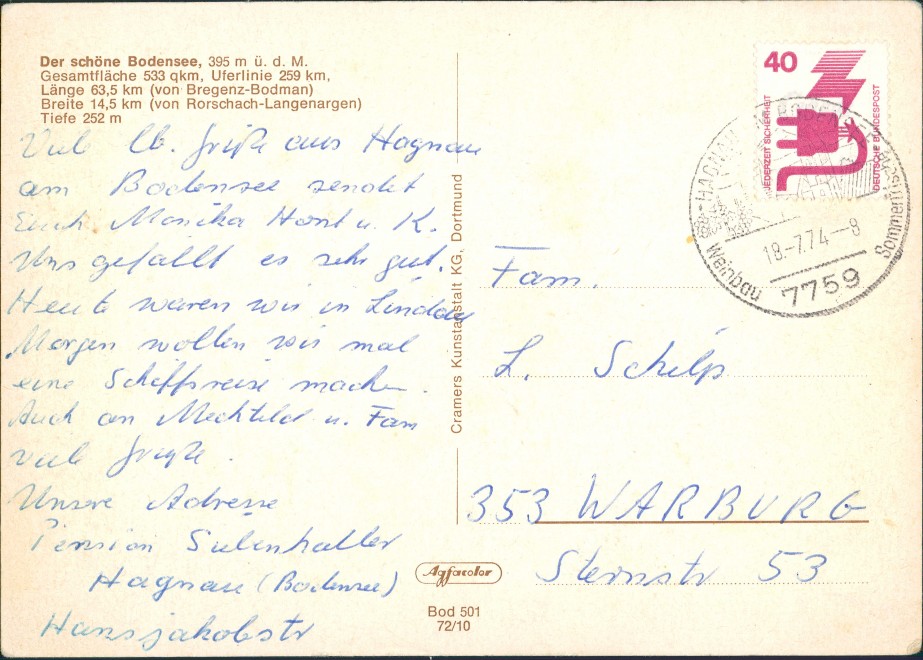 Der schöne Bodensee, 395 m ü. d. M.
Gesamtfläche 533 qkm, Uferlinie 259 km,
Länge 63,5 km (von Bregenz-Bodman)
Breite 14,5 km (von Rorschach-Langenargen)
Tiefe 252 m
Viele lb. Grüße aus Hagnau
am Bodensee sendet
Euch Monika Horst u. K.
Uns gefällt es sehr gut.
Heute waren wir in Lindau
Morgen wollen wir mal
eine Schiffsreise machen.
Auch an Mechtild u. Fam
viele Grüße.
Unsere Adresse
Pension
Hagnau (Bodensee)
Hansjakobstr
Cramers Kunstanstalt KG, Dortmund
Agfacolor
Bod 501
72/10
40
JEDERZEIT SICHERHEIT
DEUTSCHE BUNDESPOST
HAGNAU
18.-7.74-8
Weinbau
7759
Fam.
L. Schilp
353 WARBURG
Sternstr 53